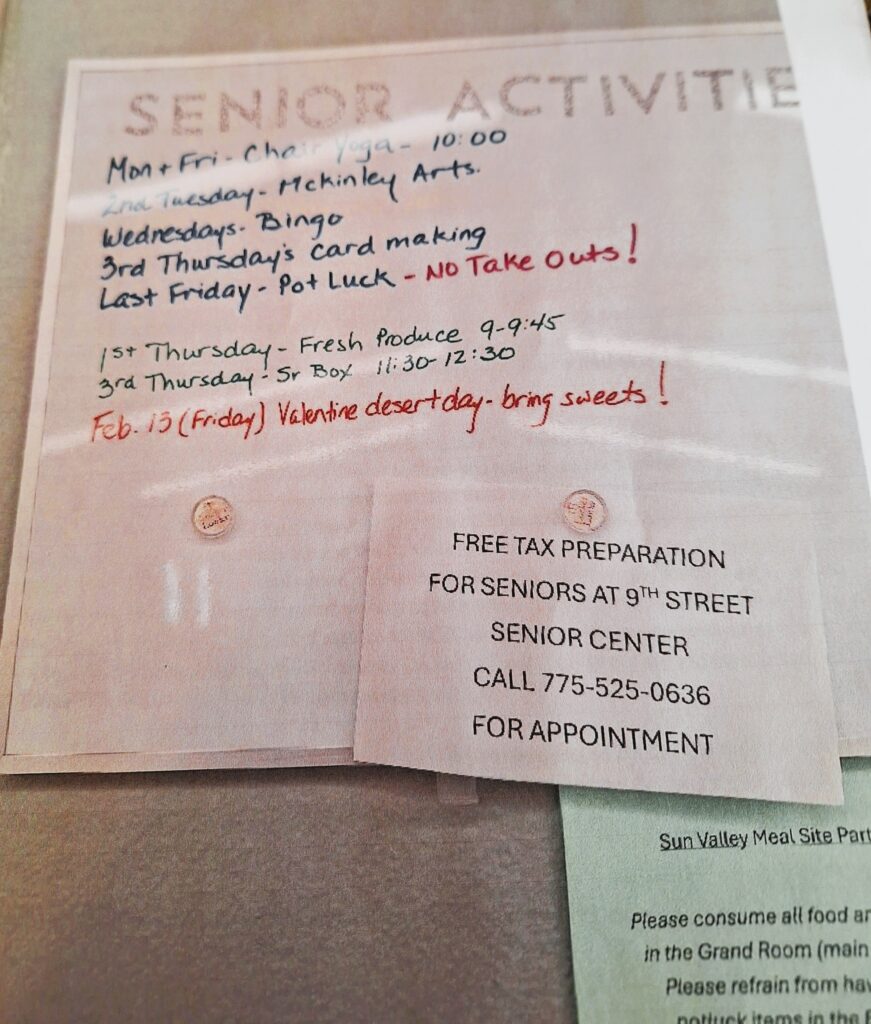 SENIOR ACTIVITIE
Mon + Fri - Chair Yoga - 10:00
2nd Tuesday - Mckinley Arts.
Wednesdays - Bingo
3rd Thursday's card making
Last Friday - Pot Luck - No Take Outs!
1st Thursday - Fresh Produce 9-9:45
3rd Thursday - Sr Box 11:30-12:30
Feb. 13 (Friday) Valentine desert day - bring sweets!
FREE TAX PREPARATION
FOR SENIORS AT 9TH STREET
SENIOR CENTER
CALL 775-525-0636
FOR APPOINTMENT
Sun Valley Meal Site Part
Please consume all food an
in the Grand Room (main
Please refrain from hav
potluck items in the